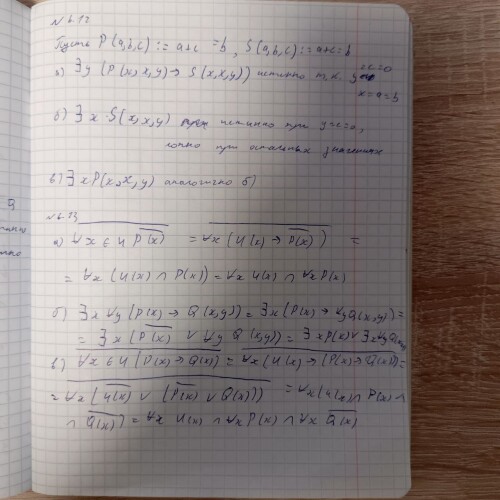 №6.12
Пусть P(a,b,c) := a+c =b, S(a,b,c) := a+c=b
а) ∃y (P(x,x,y) → S(x,x,y)) истинно т.к. y=c=0
x=a=b
б) ∃x S(x,x,y) истинно при y=c=0,
ложно при остальных значениях
в) ∃xP(x,x,y) аналогично б)
№6.13
а) ∀x∈U P(x) = ∀x (U(x) → P(x)) =
= ∀x (U(x) ∩ P(x)) = ∀x U(x) ∩ ∀xP(x)
б) ∃x ∀y (P(x) → Q(x,y)) = ∃x (P(x) → ∀yQ(x,y)) =
= ∃x (P(x) ∨ ∀y Q(x,y)) = ∃xP(x) ∨ ∃x∀yQ(x,y)
в) ∀x∈U (P(x) → Q(x)) = ∀x (U(x) → (P(x) → Q(x))) =
= ∀x (U(x) ∨ (P(x) ∨ Q(x))) = ∀x (U(x) ∩ P(x) ∩
∩ Q(x)) = ∀x U(x) ∩ ∀xP(x) ∩ ∀x Q(x)